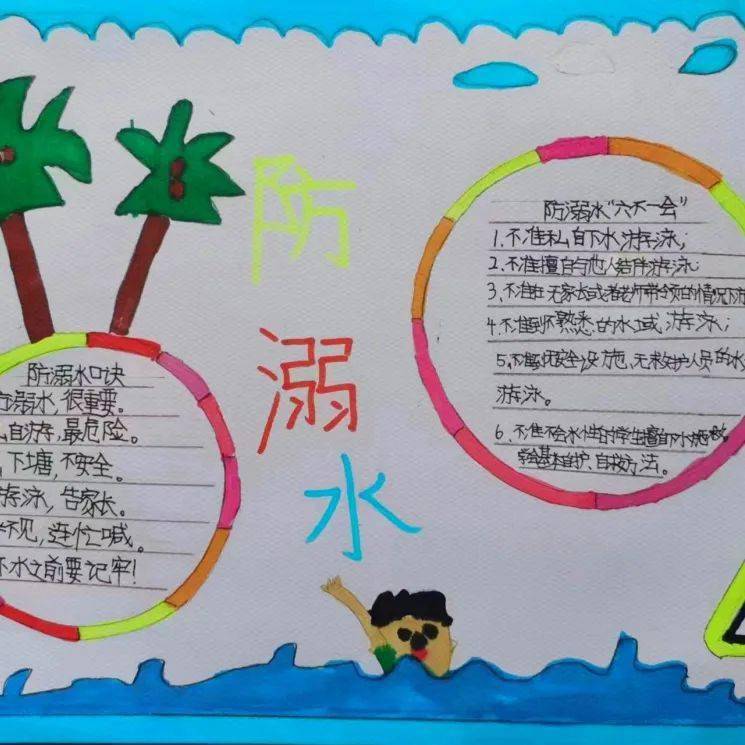 防
溺
水
防溺水口诀
溺水,很重要。
自游,最危险。
下塘,不安全。
游泳,告家长。
不见,连忙喊。
水之前要记牢!
防溺水“六不一会”
1.不准私自下水游泳;
2.不准擅自与他人结伴游泳
3.不准在无家长或者老师带领的情况下
4.不准到不熟悉的水域游泳;
5.不准到无安全设施、无救护人员的水
游泳。
6.不准不会水性的学生擅自下水
学会基本自护、自救方法。